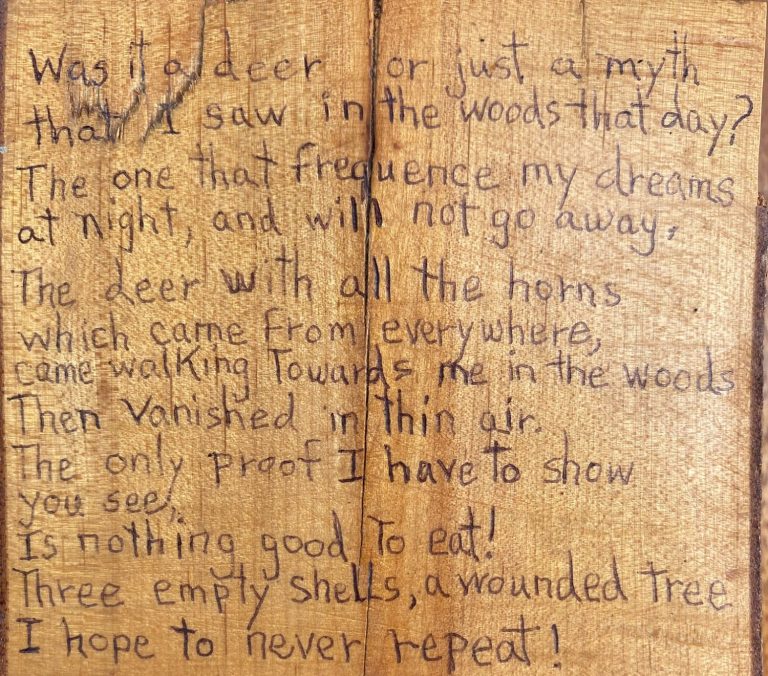 Was it a deer or just a myth
that I saw in the woods that day?
The one that frequence my dreams
at night, and will not go away.
The deer with all the horns
which came from everywhere,
came walking Towards me in the woods
Then vanished in thin air.
The only proof I have to show
you see,
Is nothing good To eat!
Three empty shells, a wounded tree
I hope to never repeat!